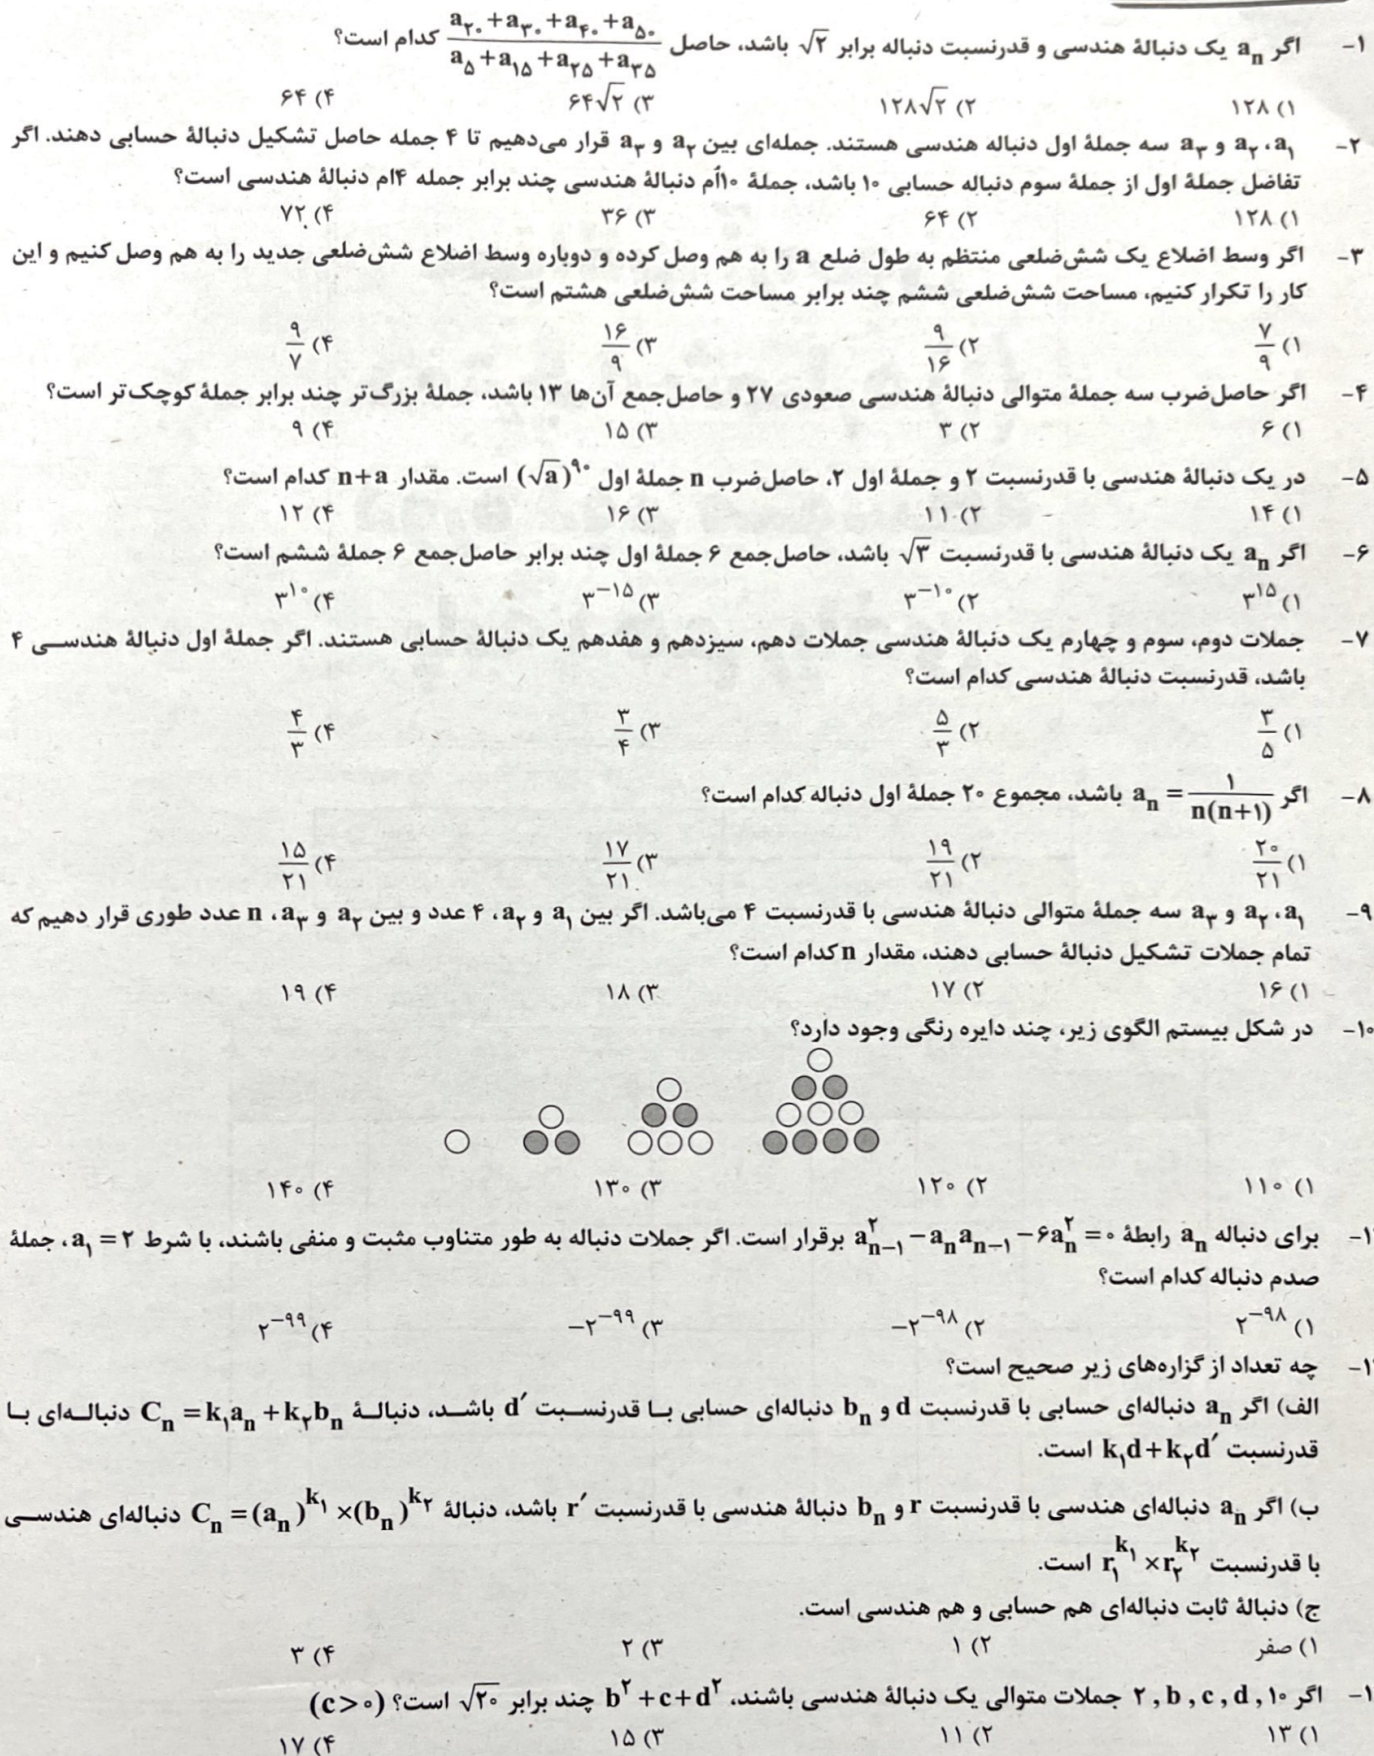 ۱- اگر aₙ یک دنبالهٔ هندسی و قدرنسبت دنباله برابر √۲ باشد، حاصل (a₂₀ + a₃₀ + a₴₀ + a₅₀)/(a₅ + a₁₅ + a₂₅ + a₃₅) کدام است؟
۱) ۱۲۸ ۲) ۱۲۸√۲ ۳) ۶۴√۲ ۴) ۶۴
۲- a₁، a₂ و a₃ سه جملهٔ اول دنباله هندسی هستند. جمله‌ای بین a₂ و a₃ قرار می‌دهیم تا ۴ جمله حاصل تشکیل دنبالهٔ حسابی دهند. اگر
تفاضل جملهٔ اول از جملهٔ سوم دنباله حسابی ۱۰ باشد، جملهٔ ۱۰اُم دنبالهٔ هندسی چند برابر جمله ۴ام دنبالهٔ هندسی است؟
۱) ۱۲۸ ۲) ۶۴ ۳) ۳۶ ۴) ۷۲
۳- اگر وسط اضلاع یک شش‌ضلعی منتظم به طول ضلع a را به هم وصل کرده و دوباره وسط اضلاع شش‌ضلعی جدید را به هم وصل کنیم و این
کار را تکرار کنیم، مساحت شش‌ضلعی ششم چند برابر مساحت شش‌ضلعی هشتم است؟
۱) ۷/۹ ۲) ۹/۱۶ ۳) ۱۶/۹ ۴) ۹/۷
۴- اگر حاصل‌ضرب سه جملهٔ متوالی دنبالهٔ هندسی صعودی ۲۷ و حاصل‌جمع آن‌ها ۱۳ باشد، جملهٔ بزرگ‌تر چند برابر جملهٔ کوچک‌تر است؟
۱) ۶ ۲) ۳ ۳) ۱۵ ۴) ۹
۵- در یک دنبالهٔ هندسی با قدرنسبت ۲ و جملهٔ اول ۲، حاصل‌ضرب n جملهٔ اول (√a)^۹۰ است. مقدار n+a کدام است؟
۱) ۱۴ ۲) ۱۱ ۳) ۱۶ ۴) ۱۲
۶- اگر aₙ یک دنبالهٔ هندسی با قدرنسبت √۳ باشد، حاصل‌جمع ۶ جملهٔ اول چند برابر حاصل‌جمع ۶ جملهٔ ششم است؟
۱) ۳^۱۵ ۲) ۳^−۱۰ ۳) ۳^−۱۵ ۴) ۳^۱۰
۷- جملات دوم، سوم و چهارم یک دنبالهٔ هندسی جملات دهم، سیزدهم و هفدهم یک دنبالهٔ حسابی هستند. اگر جملهٔ اول دنبالهٔ هندسی ۴
باشد، قدرنسبت دنبالهٔ هندسی کدام است؟
۱) ۳/۵ ۲) ۵/۳ ۳) ۳/۴ ۴) ۴/۳
۸- اگر aₙ = ۱/(n(n+۱)) باشد، مجموع ۲۰ جملهٔ اول دنباله کدام است؟
۱) ۲۰/۲۱ ۲) ۱۹/۲۱ ۳) ۱۷/۲۱ ۴) ۱۵/۲۱
۹- a₁، a₂ و a₃ سه جملهٔ متوالی دنبالهٔ هندسی با قدرنسبت ۴ می‌باشد. اگر بین a₁ و a₂، ۴ عدد و بین a₂ و a₃، n عدد طوری قرار دهیم که
تمام جملات تشکیل دنبالهٔ حسابی دهند، مقدار n کدام است؟
۱) ۱۶ ۲) ۱۷ ۳) ۱۸ ۴) ۱۹
۱۰- در شکل بیستم الگوی زیر، چند دایره رنگی وجود دارد؟
۱) ۱۱۰ ۲) ۱۲۰ ۳) ۱۳۰ ۴) ۱۴۰
۱- برای دنباله aₙ رابطهٔ a²ₙ₋₁ − aₙaₙ₋₁ − ۶a²ₙ = ۰ برقرار است. اگر جملات دنباله به طور متناوب مثبت و منفی باشند، با شرط a₁ = ۲، جملهٔ
صدم دنباله کدام است؟
۱) ۲^−۹۸ ۲) −۲^−۹۸ ۳) −۲^−۹۹ ۴) ۲^−۹۹
۱- چه تعداد از گزاره‌های زیر صحیح است؟
الف) اگر aₙ دنباله‌ای حسابی با قدرنسبت d و bₙ دنباله‌ای حسابی بـا قدرنسـبت d′ باشـد، دنبالـهٔ Cₙ = k₁aₙ + k₂bₙ دنبالـه‌ای بـا
قدرنسبت k₁d + k₂d′ است.
ب) اگر aₙ دنباله‌ای هندسی با قدرنسبت r و bₙ دنبالهٔ هندسی با قدرنسبت r′ باشد، دنبالهٔ Cₙ = (aₙ)^k₁ × (bₙ)^k₂ دنباله‌ای هندسـی
با قدرنسبت r₁^k₁ × r₂^k₂ است.
ج) دنبالهٔ ثابت دنباله‌ای هم حسابی و هم هندسی است.
۱) صفر ۲) ۱ ۳) ۲ ۴) ۳
۱- اگر ۲, b, c, d, ۱۰ جملات متوالی یک دنبالهٔ هندسی باشند، b² + c + d² چند برابر √۲۰ است؟ (c > ۰)
۱) ۱۳ ۲) ۱۱ ۳) ۱۵ ۴) ۱۷